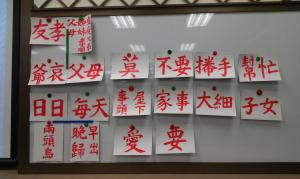 友孝 父母
爺哀 父母 莫 不要 𢯭手 幫忙
日日 每天 屋下事頭 家事 大細 子女
兩頭烏 早出晚歸 愛 要